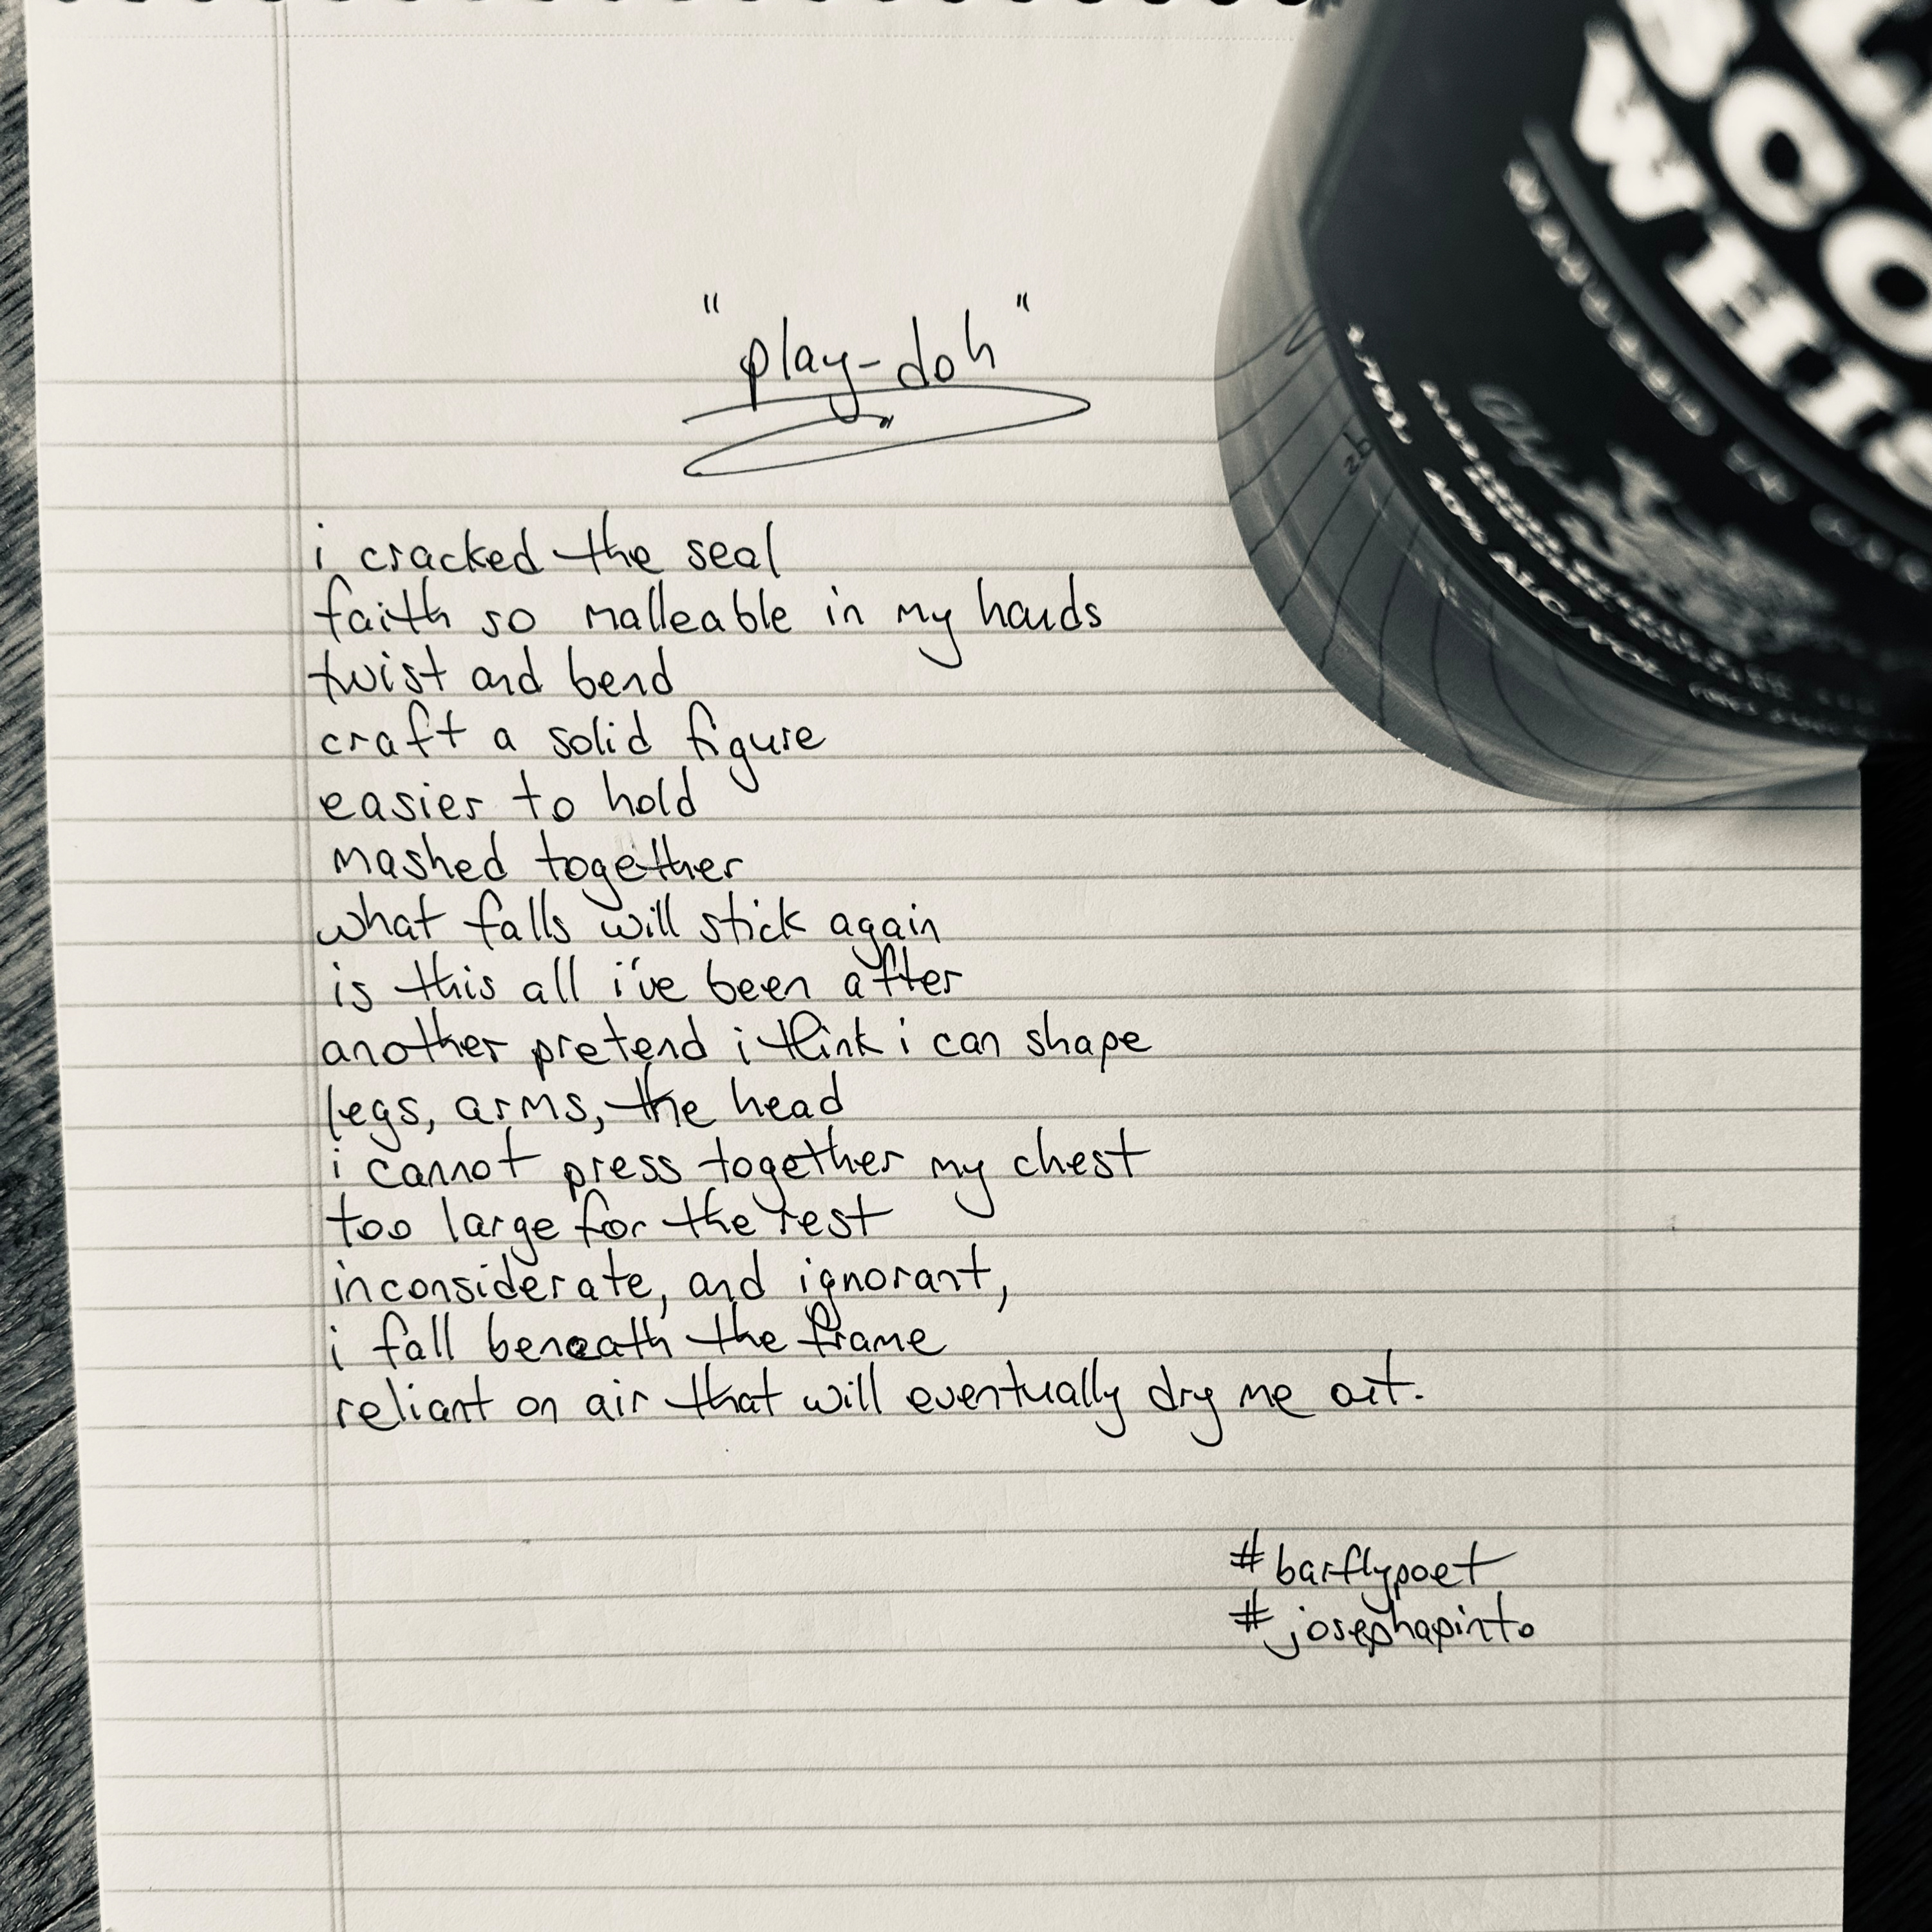 "play-doh"
i cracked the seal
faith so malleable in my hands
twist and bend
craft a solid figure
easier to hold
mashed together
what falls will stick again
is this all i've been after
another pretend i think i can shape
legs, arms, the head
i cannot press together my chest
too large for the rest
inconsiderate, and ignorant,
i fall beneath the frame
reliant on air that will eventually dry me out.
#barflypoet
#josephapinto